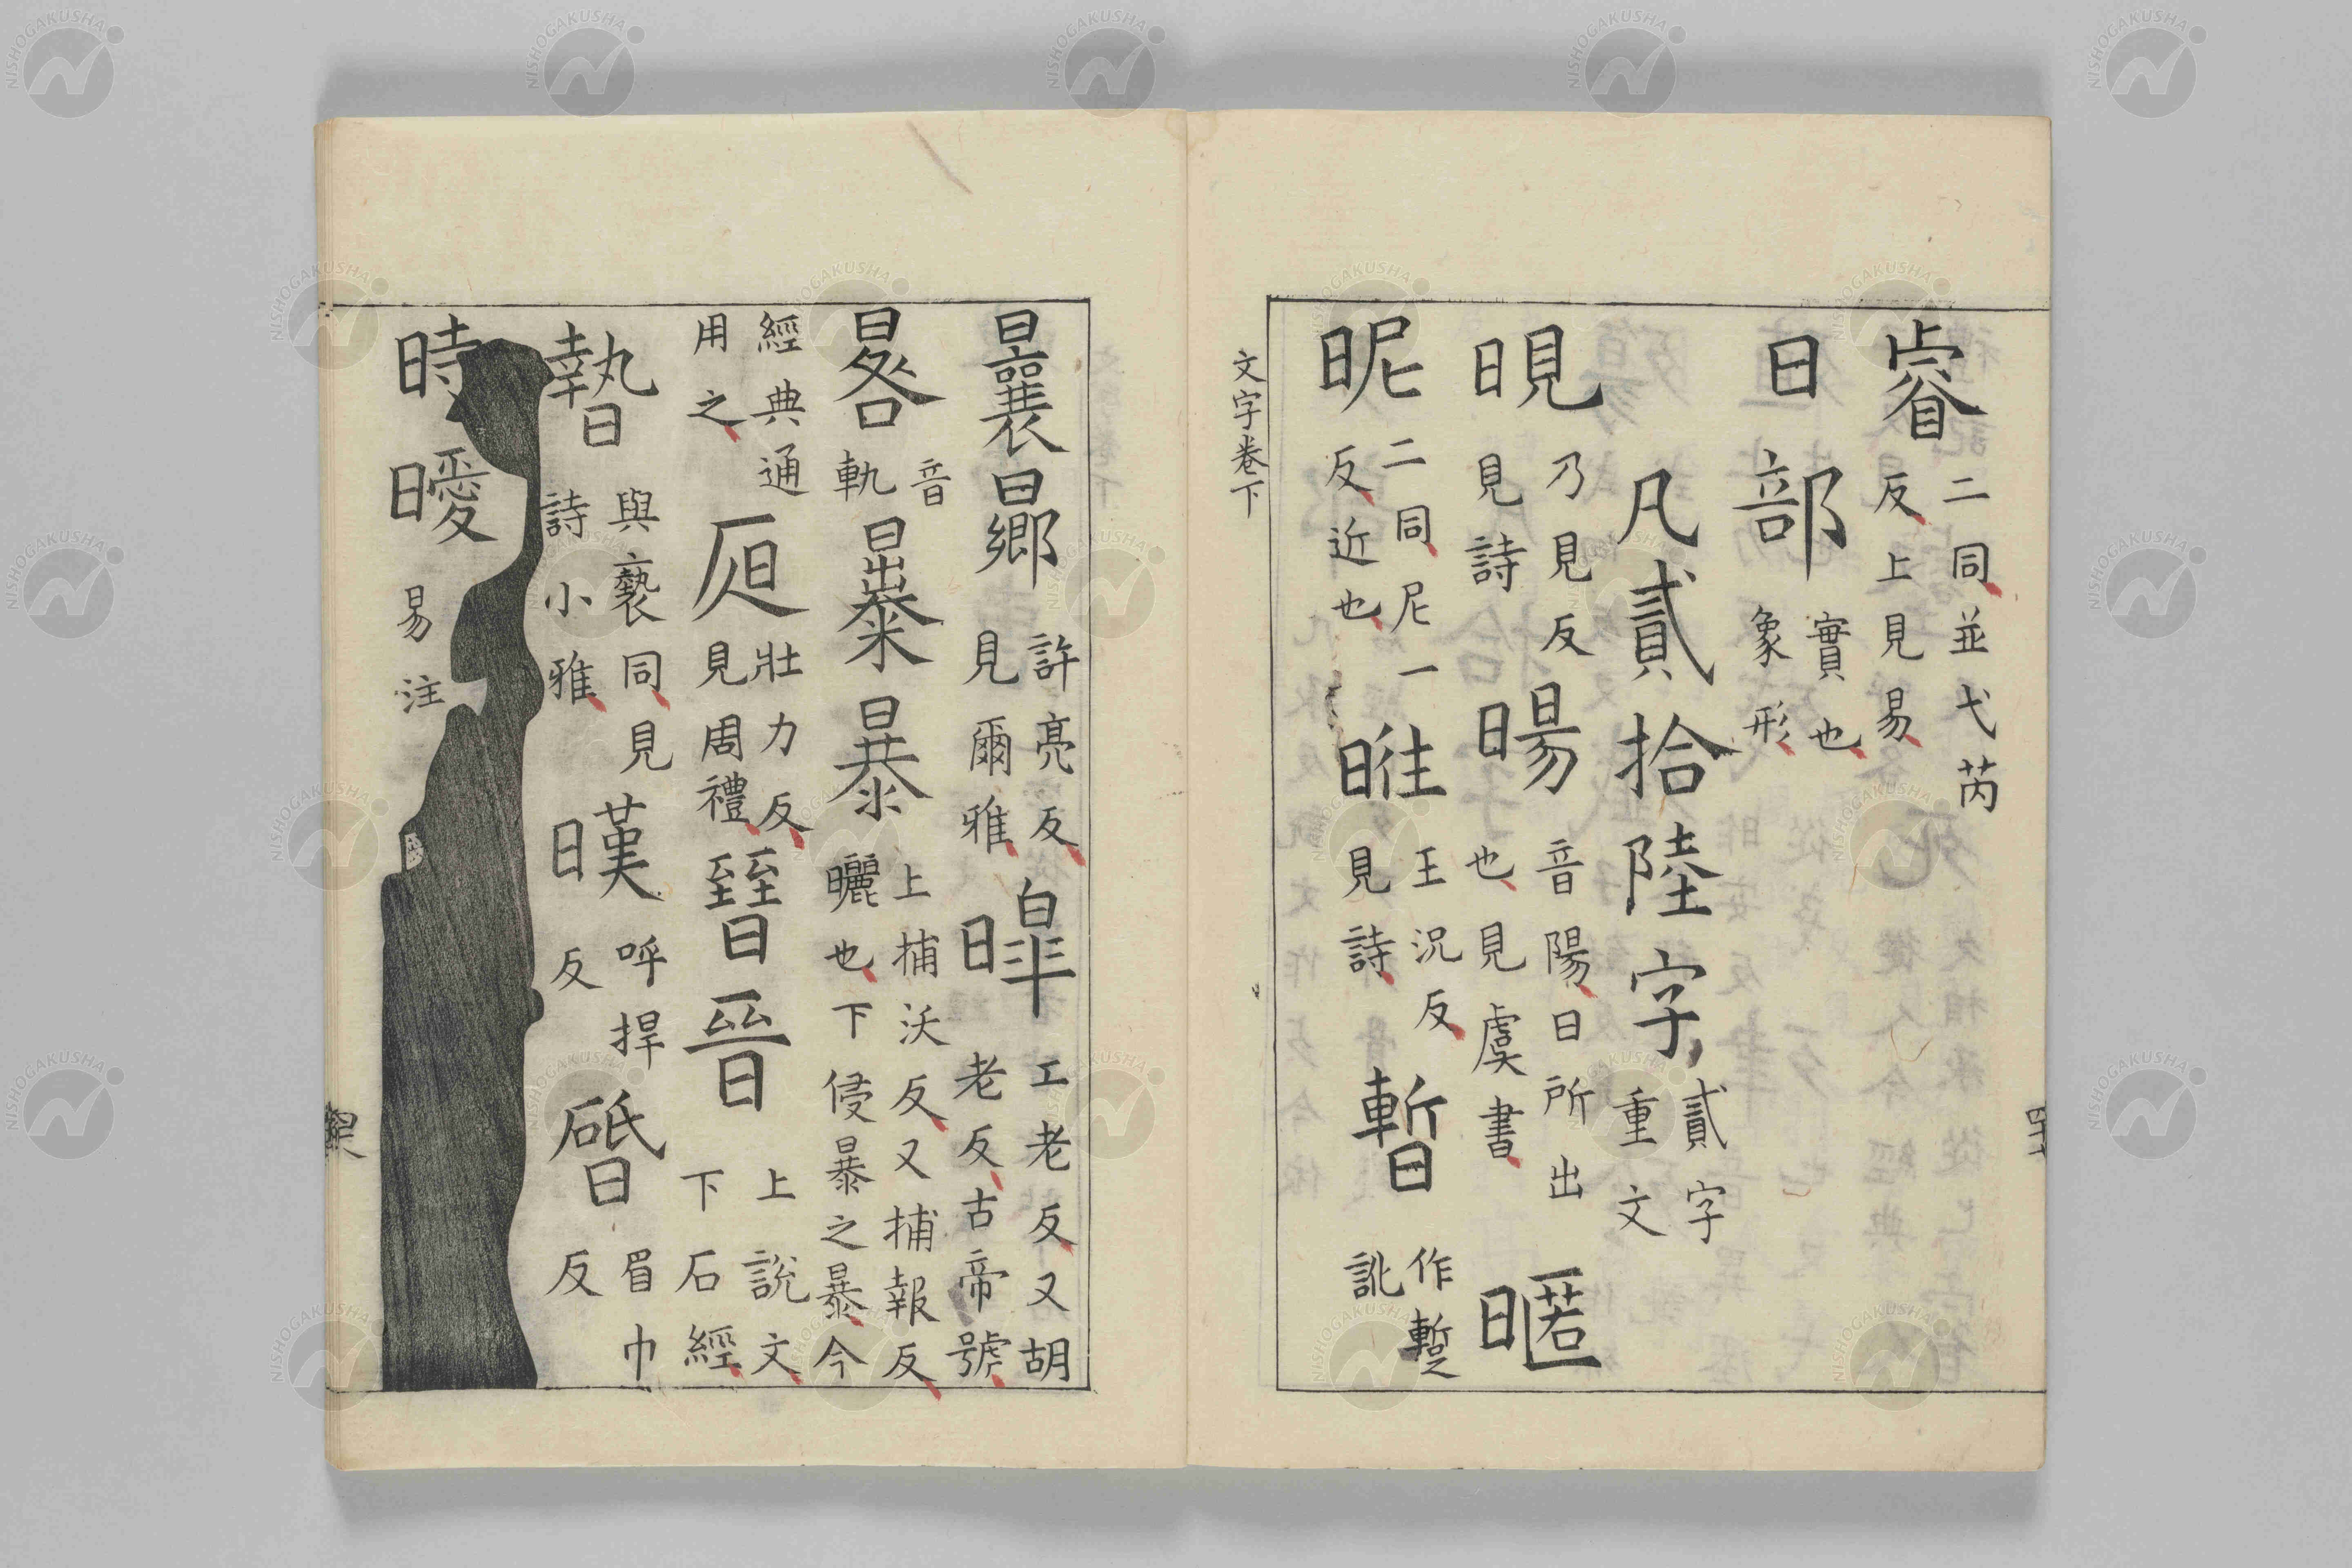 睿 二同並弋芮反上見易
日部 實也象形
凡貳拾陸字 貳字重文
晛 乃見反見詩 暘 音陽日所出也見虞書 暱
昵 二同尼一反近也 暀 王況反見詩 暫 作蹔訛
文字卷下
曩曏 許亮反見爾雅 暤 工老反又胡老反古帝號
晷 音軌 暴暴 上捕沃反又捕報反曬也下侵暴之暴今
經典通用之 昃 壯力反見周禮 晉 上說文下石經
暬 與褻同見詩小雅 暵 呼捍反 昬 眉巾反
時曖 易注
NISHOGAKUSHA